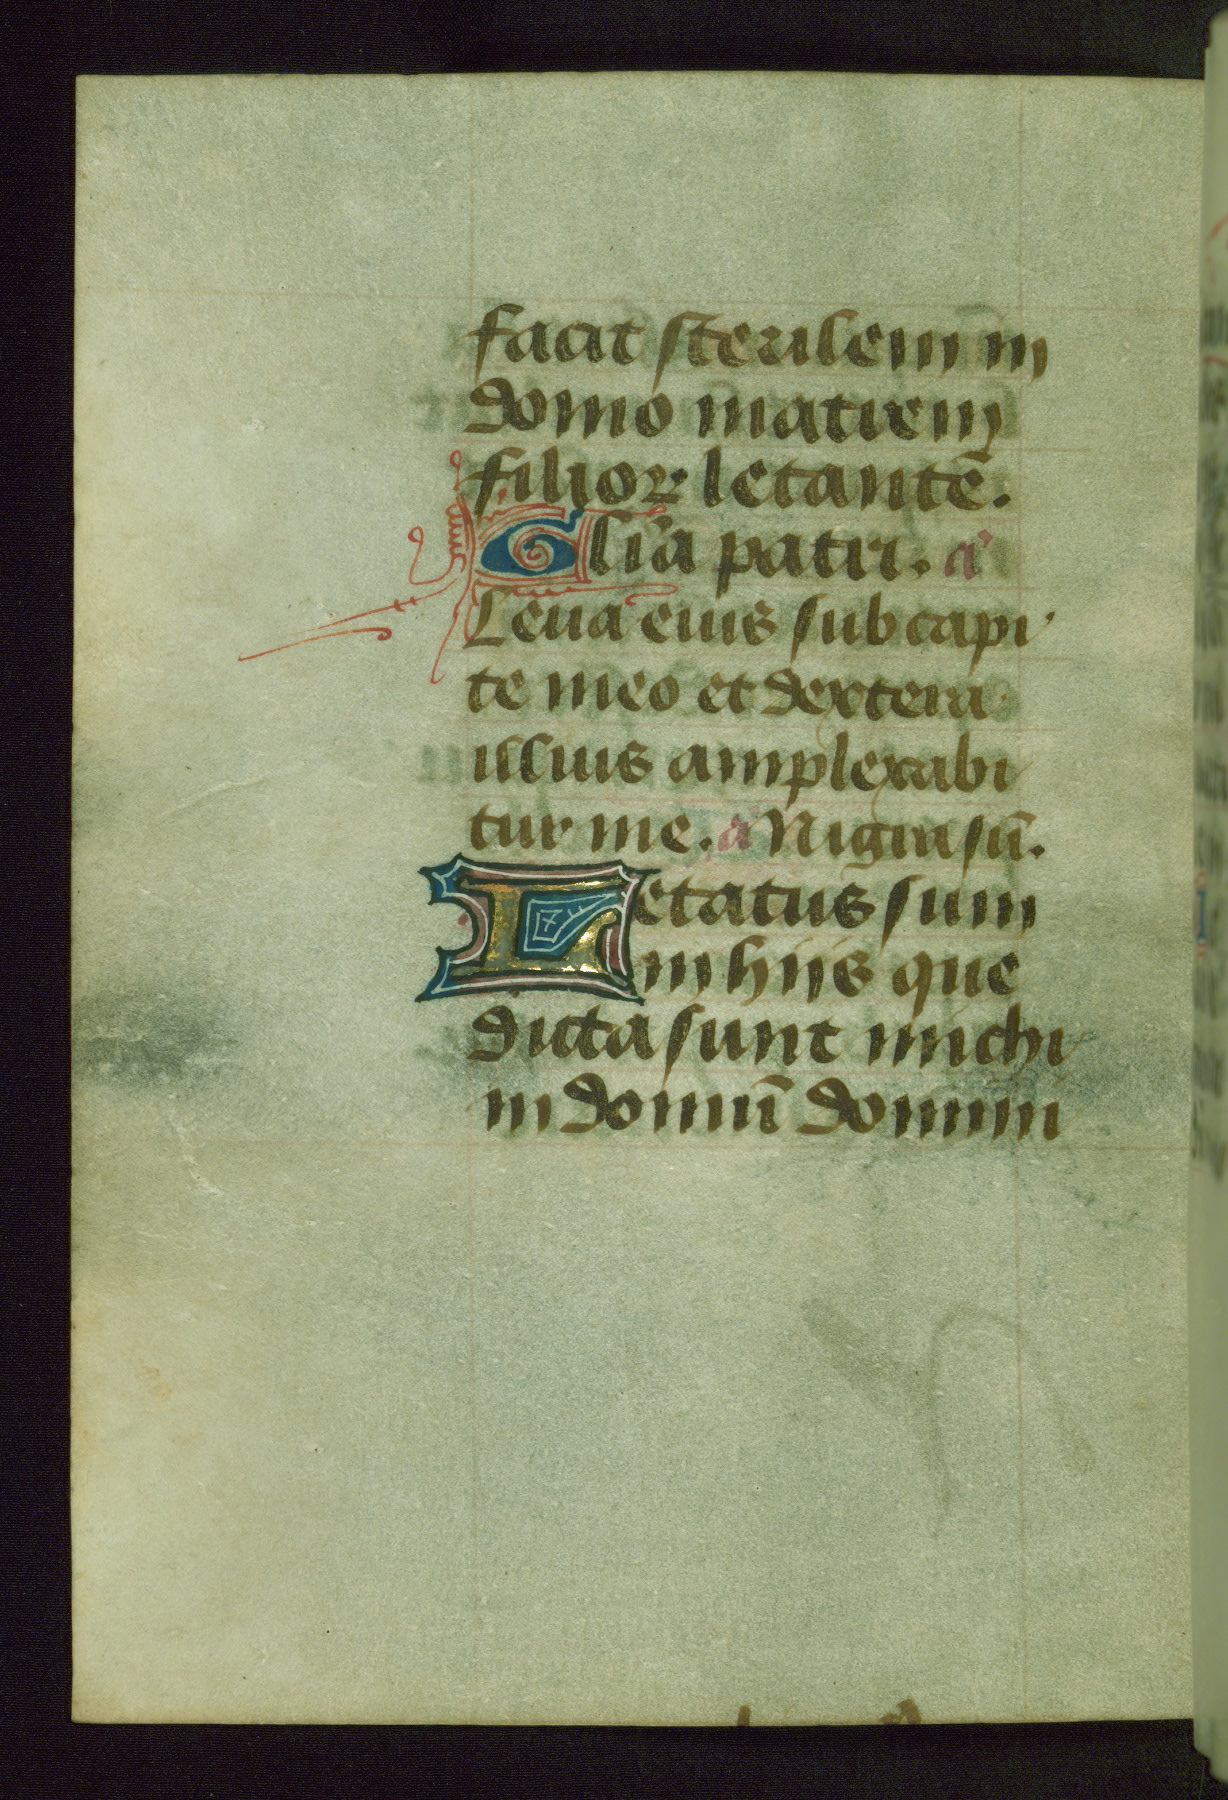 facit sterilem in
domo matrem
filioꝝ letantē.
Glīa patri. a͛
Leua eius sub capi
te meo et dextera
illius amplexabi
tur me. a͛ Nigra sū.
Letatus sum
in hijs que
dicta sunt michi
in domū domini